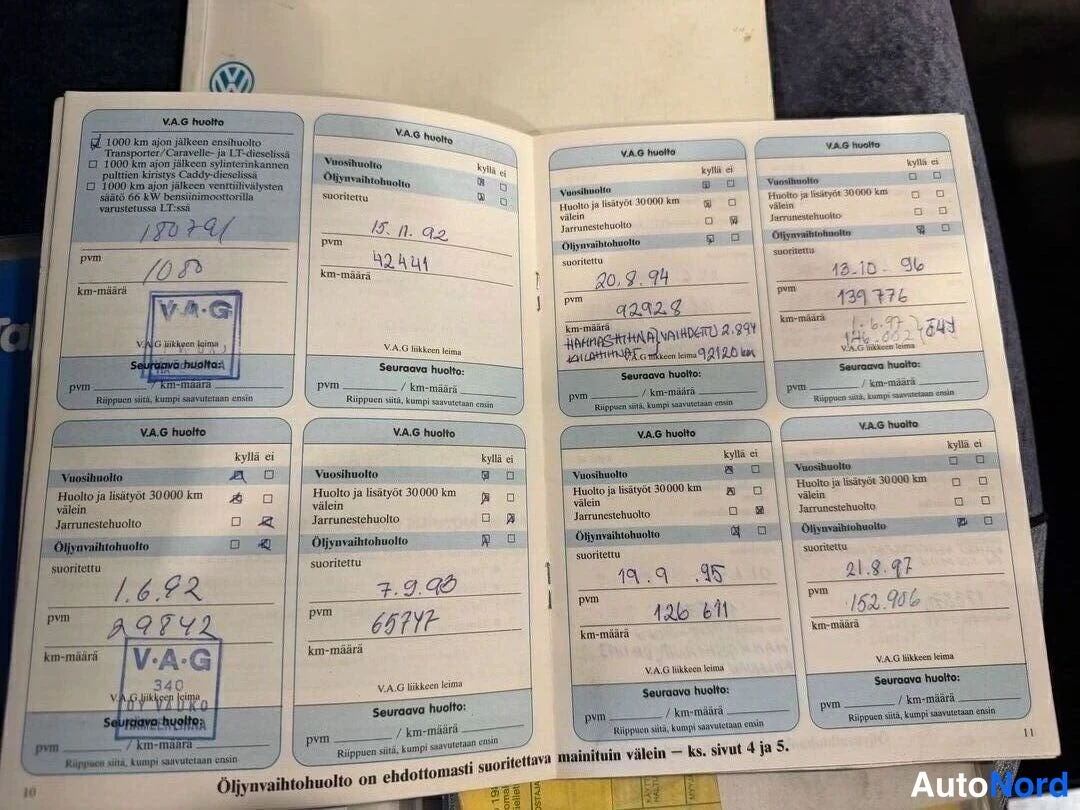 V.A.G huolto
1000 km ajon jälkeen ensihuolto
Transporter/Caravelle- ja LT-dieselissä
1000 km ajon jälkeen sylinterinkannen
pulttien kiristys Caddy-dieselissä
1000 km ajon jälkeen venttiilivälysten
säätö 66 kW bensiinimoottorilla
varustetussa LT:ssä
180791
pvm
1080
km-määrä
V·A·G
V.A.G liikkeen leima
Seuraava huolto:
pvm / km-määrä
Riippuen siitä, kumpi saavutetaan ensin
V.A.G huolto
kyllä ei
Vuosihuolto
Öljynvaihtohuolto
suoritettu
15.11.92
pvm
42441
km-määrä
V.A.G liikkeen leima
Seuraava huolto:
pvm / km-määrä
Riippuen siitä, kumpi saavutetaan ensin
V.A.G huolto
kyllä ei
Vuosihuolto
Huolto ja lisätyöt 30000 km
välein
Jarrunestehuolto
Öljynvaihtohuolto
suoritettu
1.6.92
pvm
29842
km-määrä
V·A·G
340
V.A.G liikkeen leima
OY VAUKO
Seuraava huolto:
HÄMEENLINNA
pvm / km-määrä
Riippuen siitä, kumpi saavutetaan ensin
V.A.G huolto
kyllä ei
Vuosihuolto
Huolto ja lisätyöt 30000 km
välein
Jarrunestehuolto
Öljynvaihtohuolto
suoritettu
7.9.93
pvm
65747
km-määrä
V.A.G liikkeen leima
Seuraava huolto:
pvm / km-määrä
Riippuen siitä, kumpi saavutetaan ensin
Öljynvaihtohuolto on ehdottomasti suoritettava mainituin välein – ks. sivut 4 ja 5.
10
V.A.G huolto
kyllä ei
Vuosihuolto
Huolto ja lisätyöt 30000 km
välein
Jarrunestehuolto
Öljynvaihtohuolto
suoritettu
20.8.94
pvm
92928
km-määrä
HAMMASHIHNA VAIHDETTU 2.894
KIILAHIHNAT V.A.G liikkeen leima 92120 km
Seuraava huolto:
pvm / km-määrä
Riippuen siitä, kumpi saavutetaan ensin
V.A.G huolto
kyllä ei
Vuosihuolto
Huolto ja lisätyöt 30000 km
välein
Jarrunestehuolto
Öljynvaihtohuolto
suoritettu
13.10.96
pvm
139776
km-määrä
1.6.97
146.002
V.A.G liikkeen leima
Seuraava huolto:
pvm / km-määrä
Riippuen siitä, kumpi saavutetaan ensin
V.A.G huolto
kyllä ei
Vuosihuolto
Huolto ja lisätyöt 30000 km
välein
Jarrunestehuolto
Öljynvaihtohuolto
suoritettu
19.9.95
pvm
126 611
km-määrä
V.A.G liikkeen leima
Seuraava huolto:
pvm / km-määrä
Riippuen siitä, kumpi saavutetaan ensin
V.A.G huolto
kyllä ei
Vuosihuolto
Huolto ja lisätyöt 30000 km
välein
Jarrunestehuolto
Öljynvaihtohuolto
suoritettu
21.8.97
pvm
152.906
km-määrä
V.A.G liikkeen leima
Seuraava huolto:
pvm / km-määrä
Riippuen siitä, kumpi saavutetaan ensin
11
AutoNord